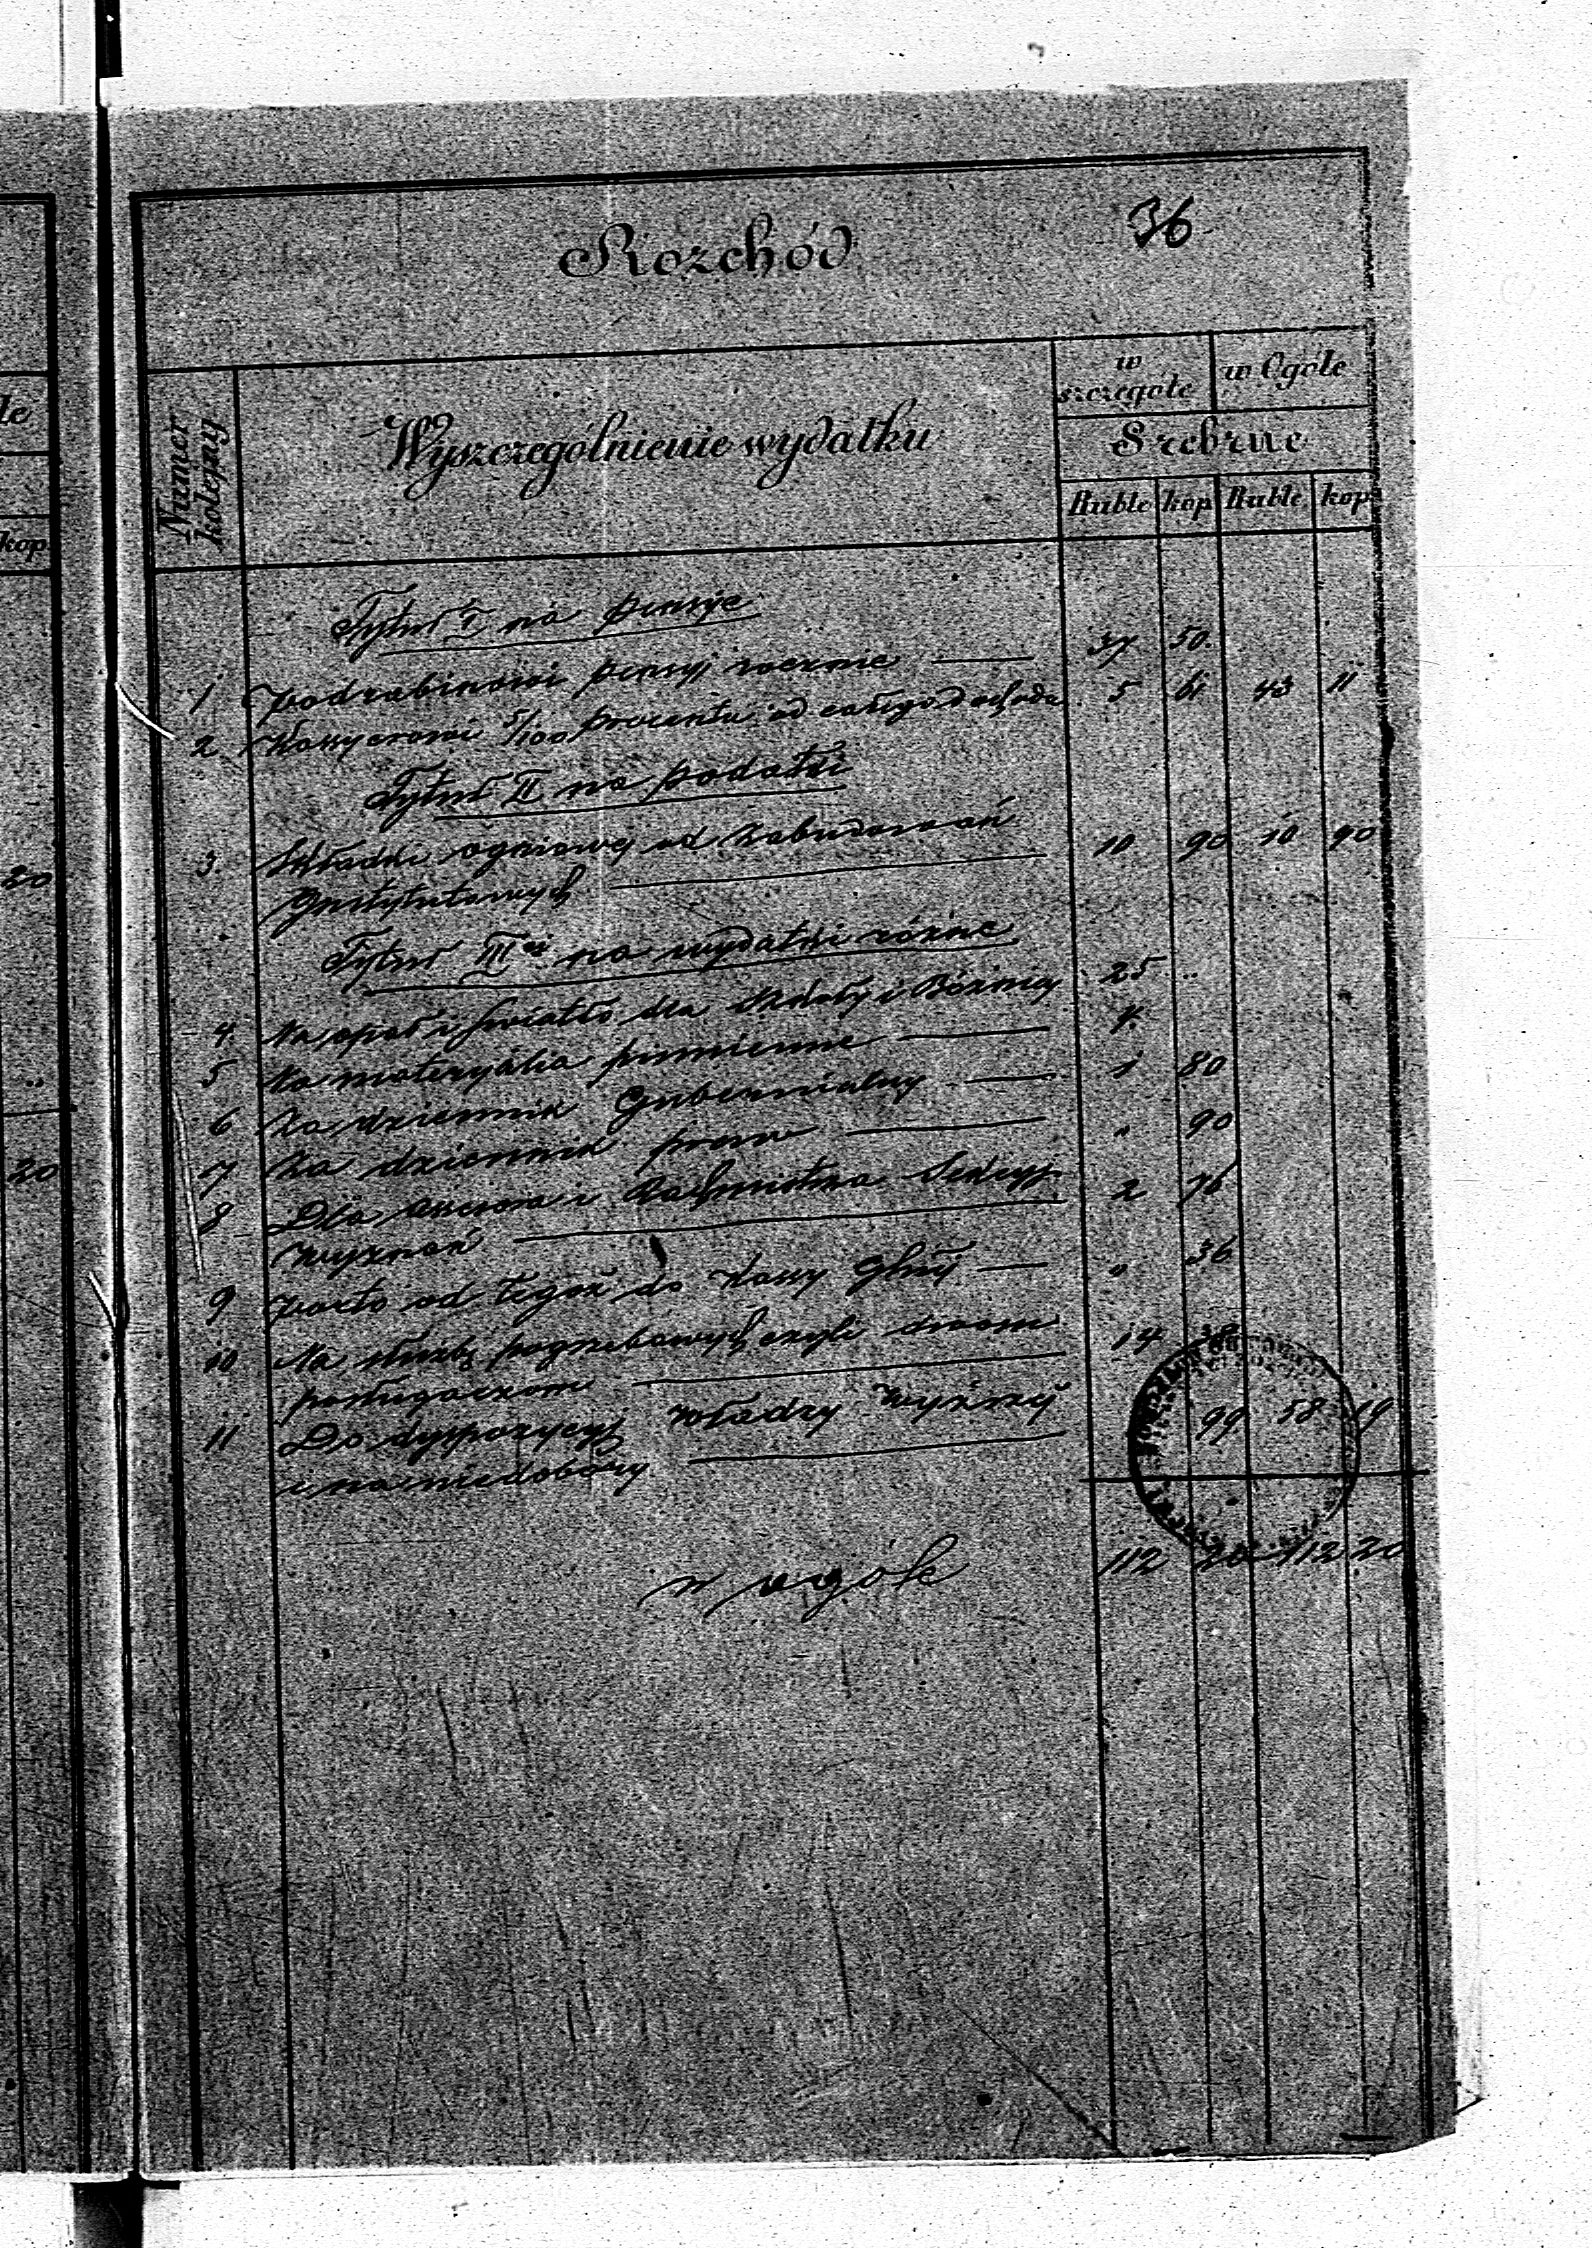 36
Rozchód
Numer kolejny
Wyszczególnienie wydatku
w szczególe
w Ogóle
Srebrne
Ruble kop Ruble kop
Tytuł I na pensye
1 podrabinowi pensyi rocznie 37 50.
2 Kassyerowi 5/100 procentu od całego dochodu 5 61 43 11
Tytuł II na podatki
3. Składki ogniowej od zabudowań 10 90 10 90
Instytutowych
Tytuł III na wydatki różne
4. Na opał i światło dla Szkoły i Bóżnicy 25 "
5 Na materyalia piśmienne
6 Za dziennik Gubernialny 1 80
7 Za dziennik praw " 90
8 Dla i Rachmistrza Sekcyi 2 76
Wyznań
9 porto od tegoż do Kassy " 36
10 Na służbę pogrzebowych czyli dwom 14
posługaczom
11 Do dyspozycyi Władzy Wyższej 99 58 19
i na niedobory
w ogóle 112 20 112 20
le
kop
20
"
20